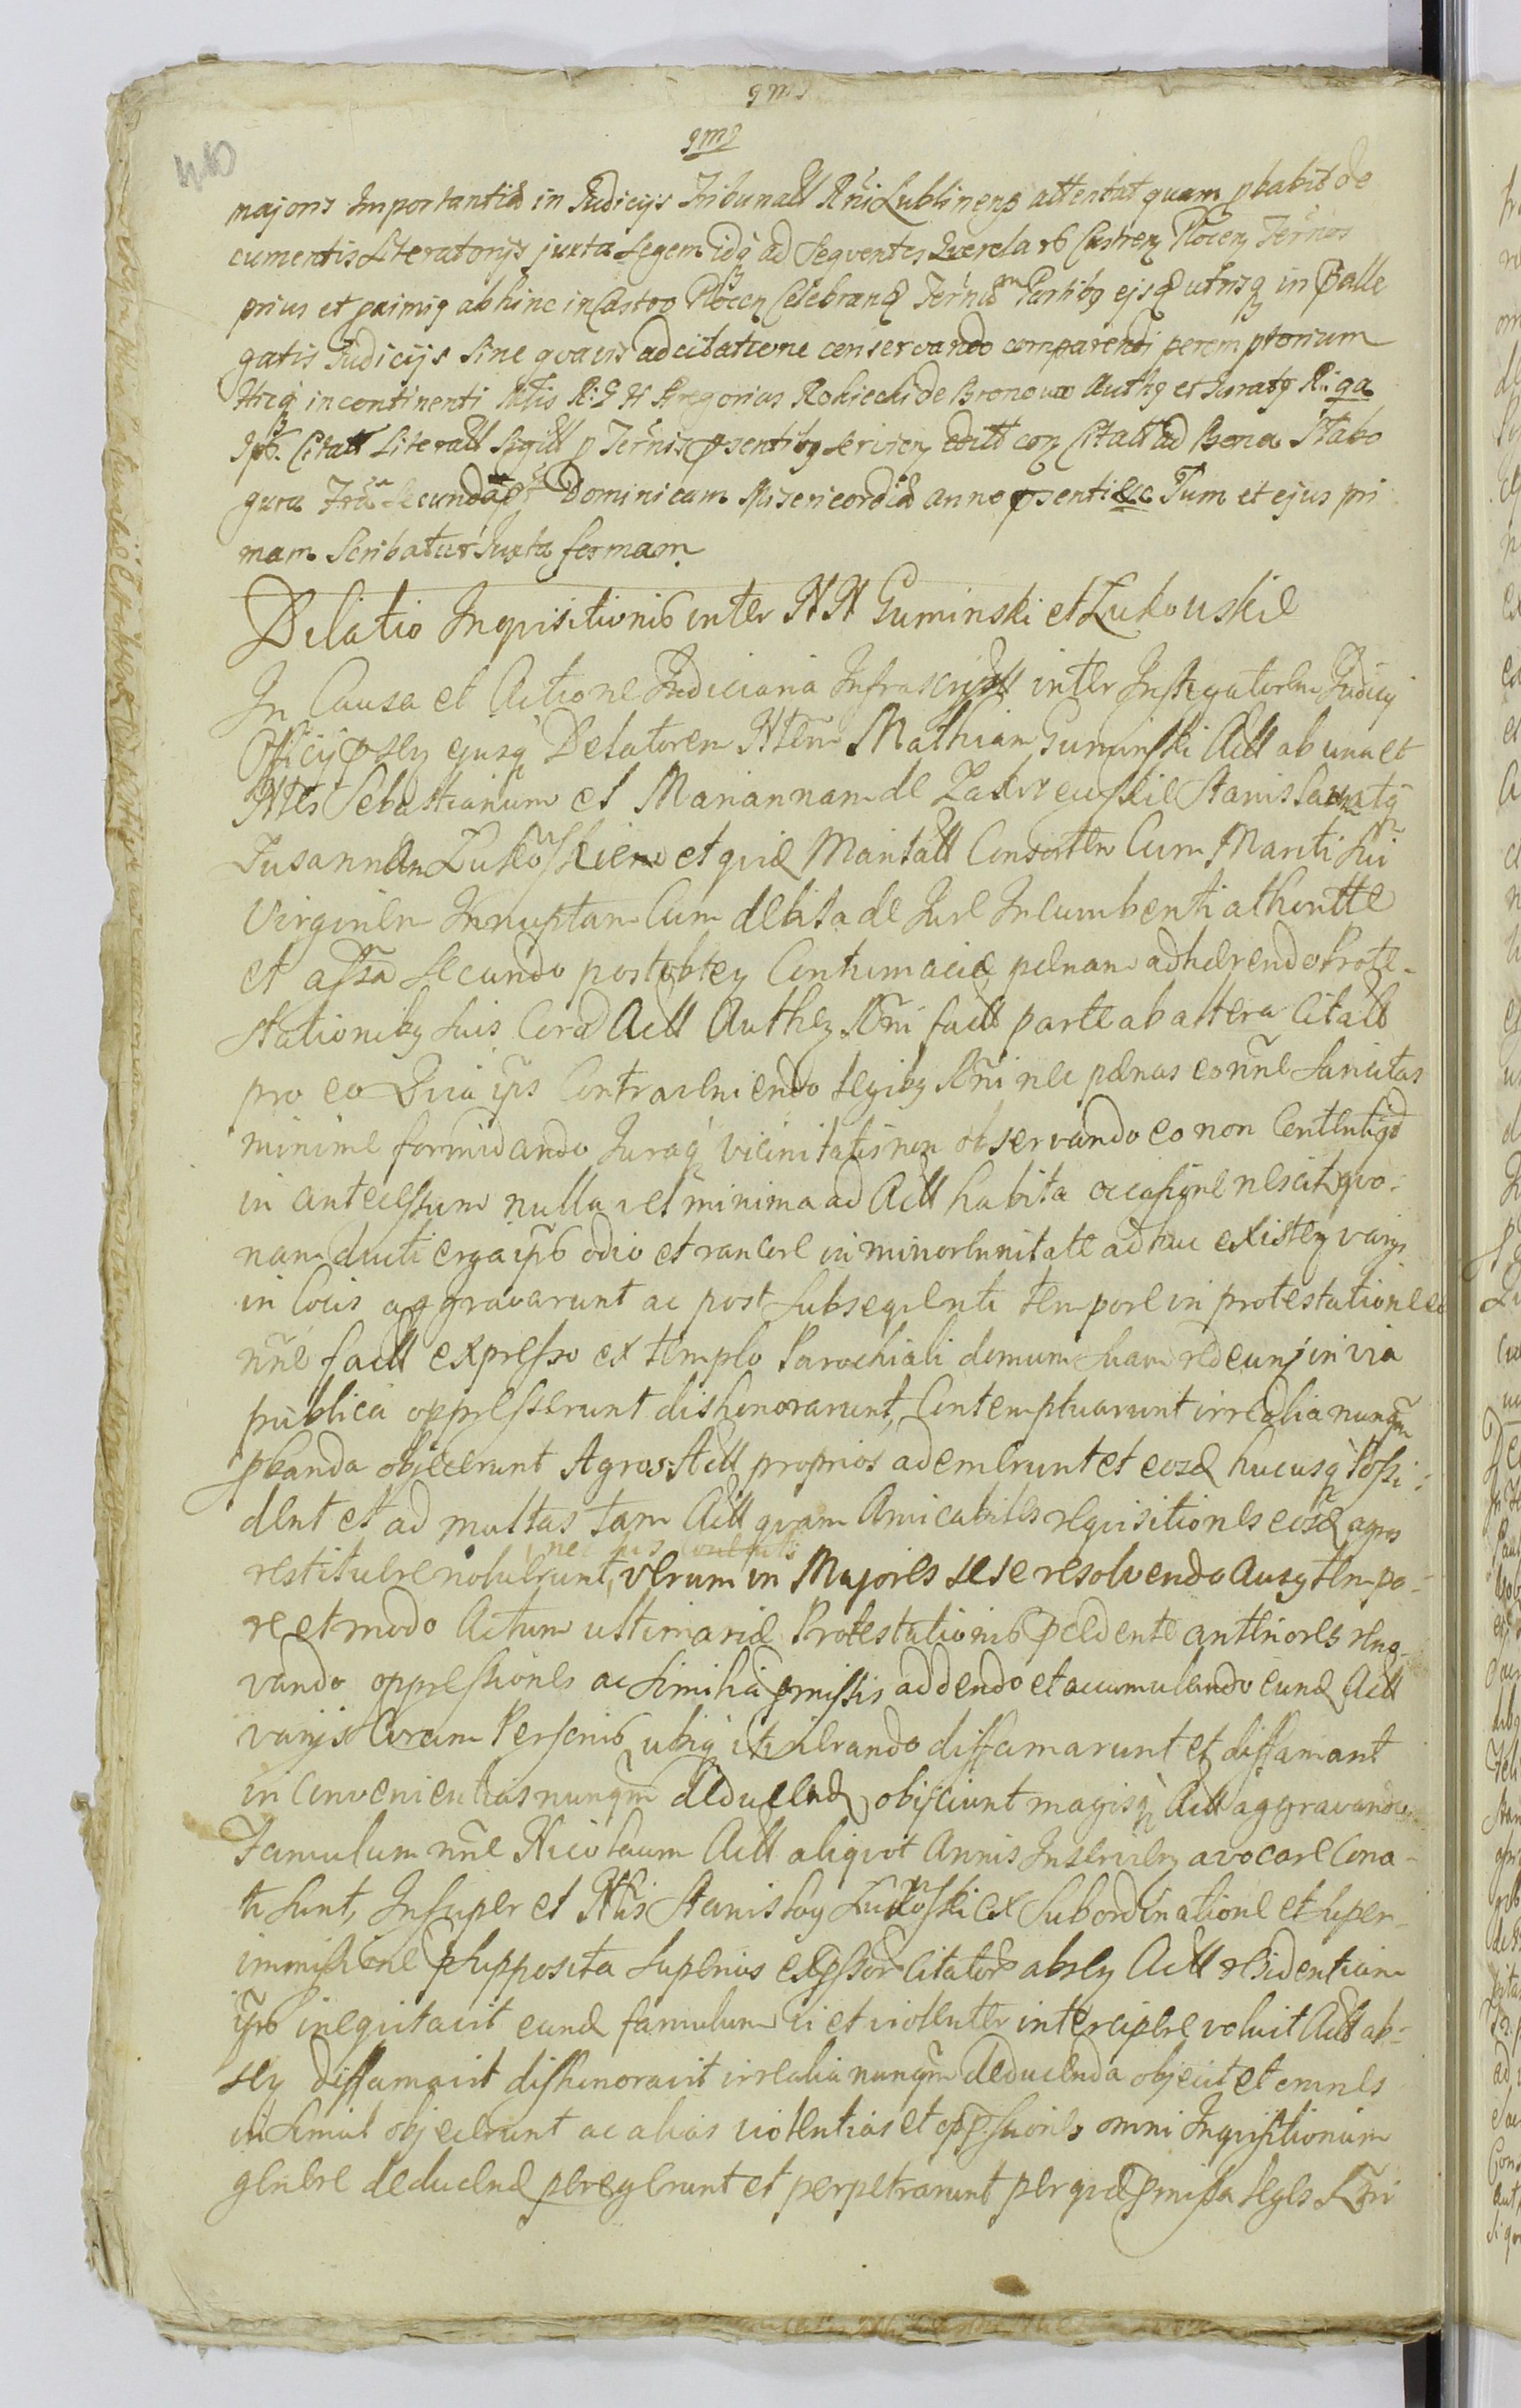 gms
gms
440
majoris Importantiæ in Judicijs Tribunall Rñi Lublinens attentat quam pbabit do
cumentis Literatorijs juxta Legem idq ad Sequentes Querelarū Castren Plocen Terños
prius et primig abhinc in Castro Plocen Celebrand Terñis Partibg ejsd utrisq in
gatis Judicijs Sine quavis adcitatione conservando comparendi peremptorium
Hicq incontinenti Nlis Gregorius Rokicki de Bronowo Authg et Juratg R: ga
Ips. Citatt Literall Sigill p Terñis psentibg servien editt con Citatt ad Bona Stabo
gura Fria Secunda pt Dominicam Misericordiæ anno psenti &c Tum et ejus pri
mam Scribatur Juxta formam
Delatio Inquisitionis inter NN Guminski et Lukowskie
In Causa et Actione Judiciaria Infrascriptt inter Instigatorem Judicij
Officij psen ejusq Delatorem Nlem Mathiam Guminski Actt ab una et
Nles Sebastianum et Mariannam de Zakrzewskie Stanislaum atq
Susannam Lukoskiem et quid Maritatt Consortem Cum Mariti sui
Virginem Innuptam Cum debita de Jure Incumbenti athoritte
et assa secundo post obten Contumaciæ pænam adhærendo Prote-
stationibg suis Corā Actt Authen Rñi factt parte ab altera Citatt
pro eo Quia ips Contraveniendo Legibg Rñi nec pænas eo nñe Sancitas
minime formidando Juraq vicinitatis non observando eo non Contentiqd
in antecessum nulla vel minima ad Actt habita occasione nescit quo-
nam ducti erga ips odio et rancore in minorennitate adhuc existen varijs
in locis aggravarunt ac post subsequenti tempore in protestatione eo
nñe factt expresso ex templo Parochiali domum suam redeun in via
publica oppresserunt dishonorarunt, Contemptuarunt irrealia nunqm
pbanda objecerunt Agros Actt proprios ademerunt et eosd hucusq Possi-
dent et ad multas tam Actt quam Amicabiles requisitiones eosd agros
nec his contenti
restituere noluerunt, verum in Majores sese resolvendo Ausg tempo-
re et modo Actum ultimariæ Protestationis pcedente anteriores reno-
vando oppressiones ac similia pmissis addendo et accumulando eund Actt
varijs Coram Personis ubiq itinerando diffamarunt et diffamant
inconvenientias nunqm deducend objiciunt magisq Actt aggravando
Famulum nñe Nicolaum Actt aliquot Annis Inservien avocare Cona-
ti sunt, Insuper et Nlis Stanislag Lukoski ex Subordinatione et super-
immissione psupposita superius expssor Citator absen Actt residentiam
ips inequitavit eund famulum vi et violenter intercipere voluit Actt ab-
sen diffamavit dishonoravit irrealia nunqm deducenda objecit et omnes
insimul objecerunt ac alias violentias et oppssiones omni Inquisitionum
genere deducend peregerunt et perpetrarunt per quæ pmissa leges Rñi